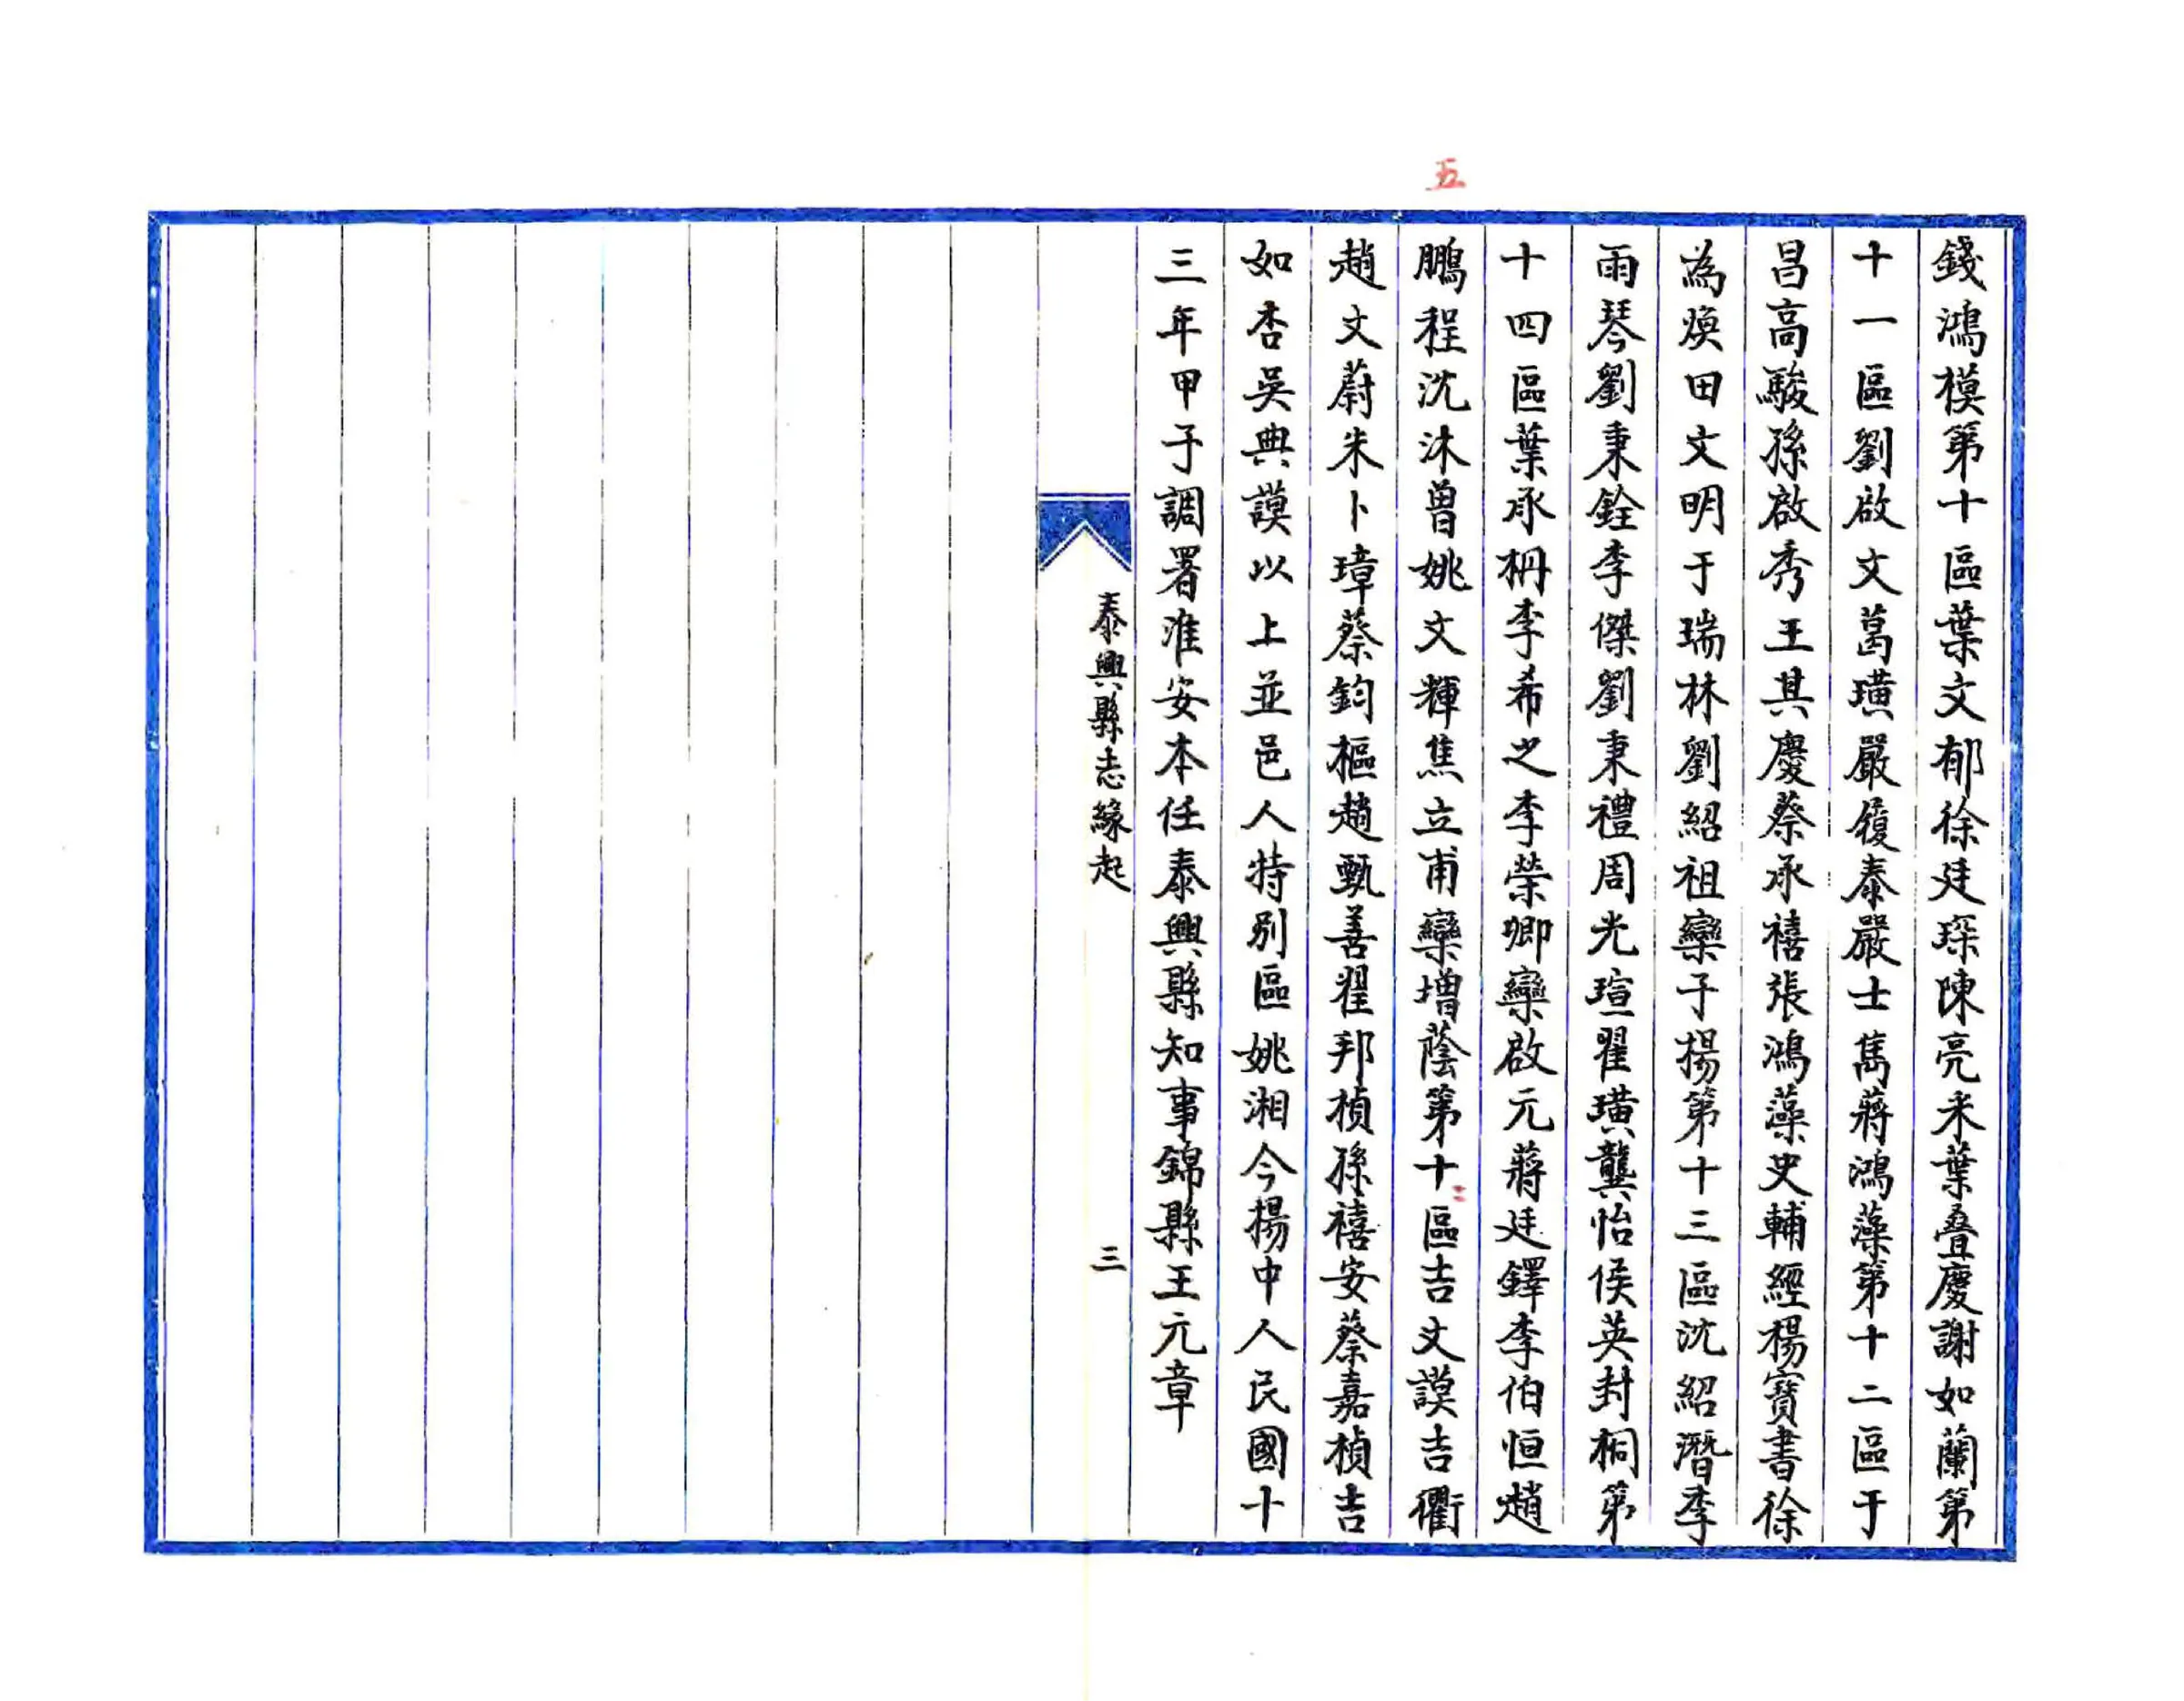 五
錢鴻模第十區葉文郁徐廷琛陳亮采葉叠慶謝如蘭第
十一區劉啟文葛璜嚴復泰嚴士雋蔣鴻藻第十二區于
昌高駿孫啟秀王其慶蔡承禧張鴻藻史輔經楊寶書徐
為煥田文明于瑞林劉紹祖欒子揚第十三區沈紹潛李
雨琴劉秉銓李傑劉秉禮周光瑄翟璜龔怡侯英封桐第
十四區葉承枬李希之李榮卿欒啟元蔣廷鐸李伯恒趙
鵬程沈沐曾姚文輝焦立甫欒增蔭第十區吉文謨吉衢
趙文蔚朱卜璋蔡鈞樞趙甄善翟邦楨孫禧安蔡嘉楨吉
如杏吳典謨以上並邑人特別區姚湘今揚中人民國十
三年甲子調署淮安本任泰興縣知事錦縣王元章
泰興縣志緣起
三